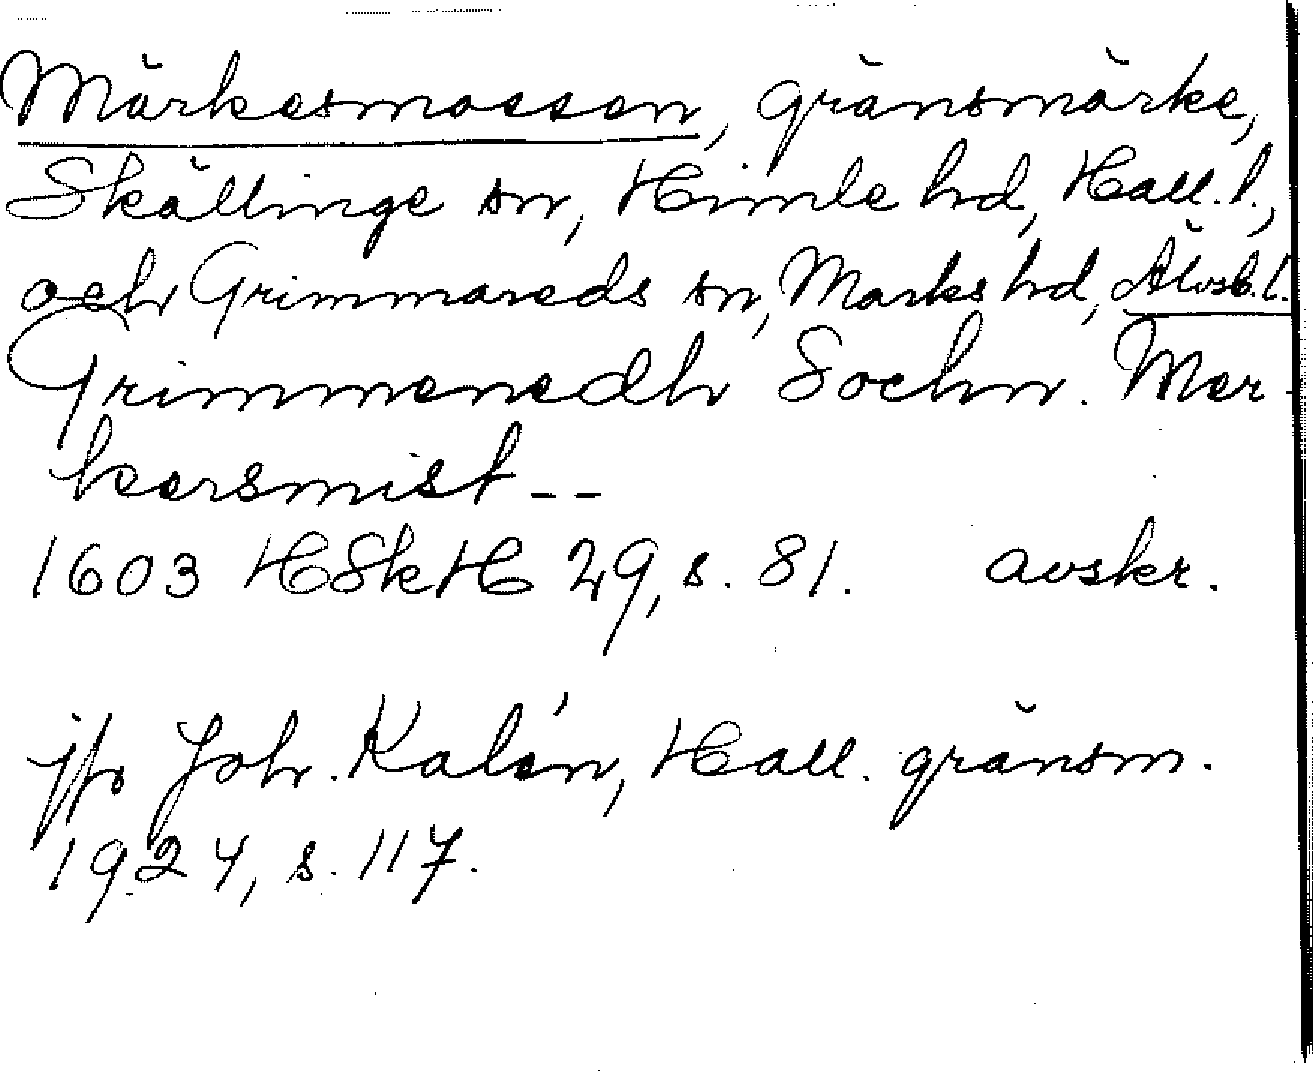 Märkesmossen, gränsmärke,
Skällinge sn, Himle hd, Hall. l.,
och Grimmareds sn, Marks hd, Älvsb. l.
Grimmenedh Sochn. Mer-
kersmist --
1603 HSkH 29, s. 81. avskr.
jfr Joh. Kalén, Hall. gränsm.
1924, s. 117.